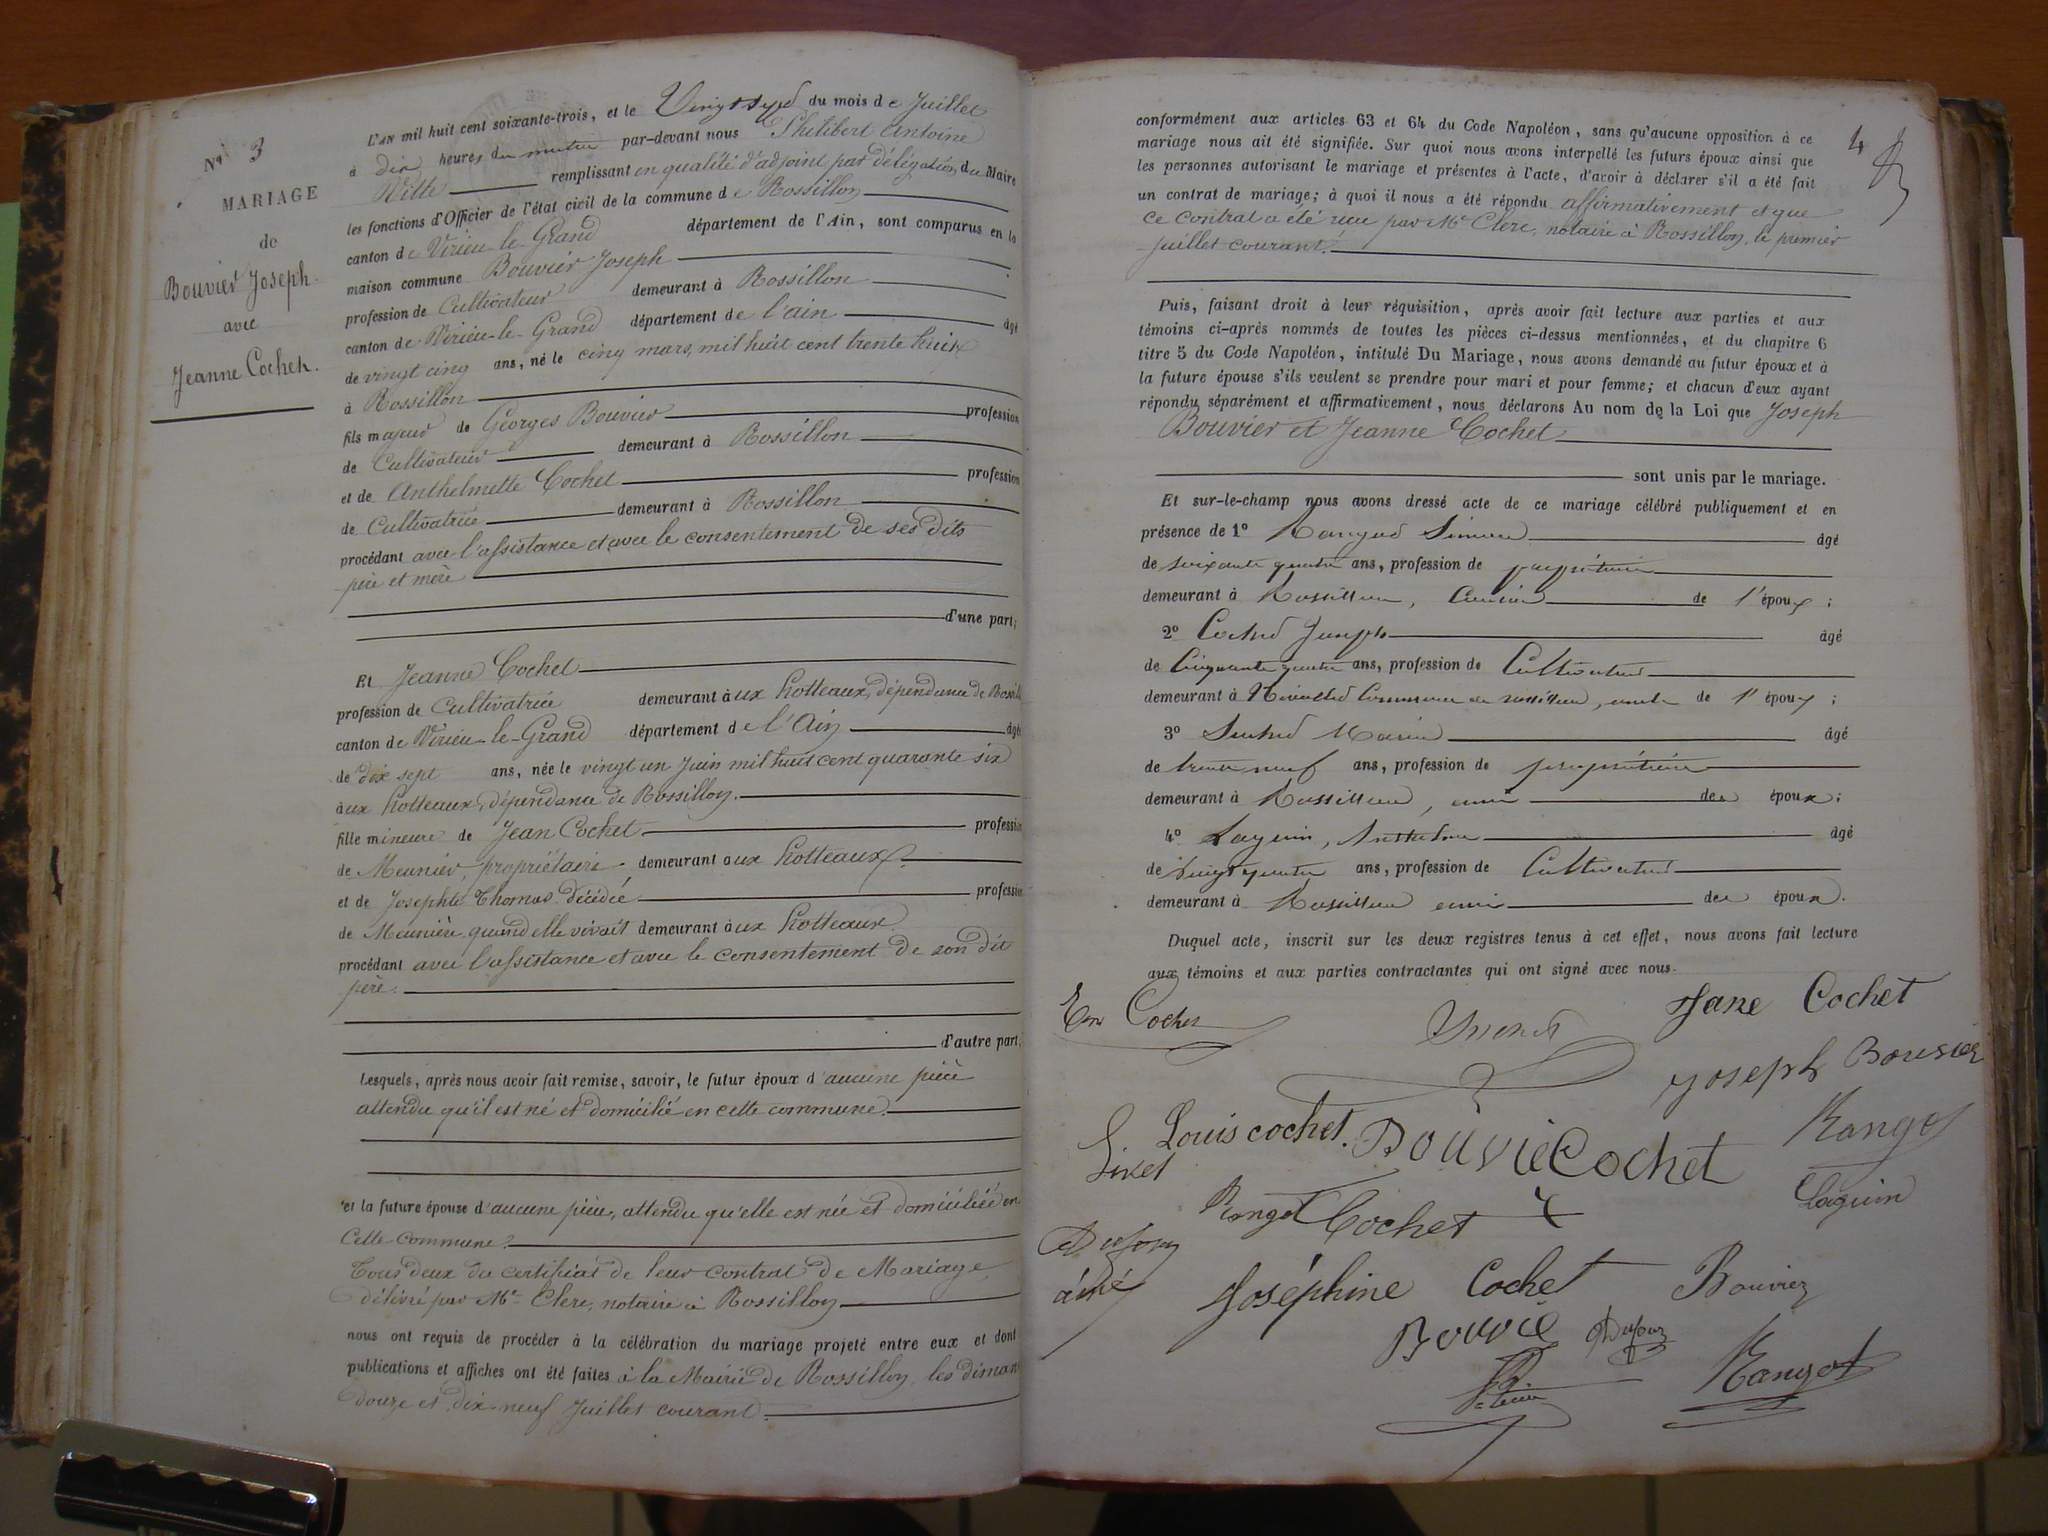 N° 3
MARIAGE
de
Bouvier Joseph
avec
Jeanne Cochet.
L'AN mil huit cent soixante-trois, et le Vingt sept du mois de Juillet
à dix heures du matin par-devant nous Philibert Antoine
Witte remplissant en qualité d'adjoint par délégation du Maire
les fonctions d'Officier de l'état civil de la commune de Rossillon
canton de Virieu-le-Grand département de l'Ain, sont comparus en la
maison commune Bouvier Joseph
profession de Cultivateur demeurant à Rossillon
canton de Virieu-le-Grand département de l'ain âgé
de vingt cinq ans, né le cinq mars, mil huit cent trente huit
à Rossillon
fils majeur de Georges Bouvier profession
de Cultivateur demeurant à Rossillon
et de Anthelmette Cochet profession
de Cultivatrice demeurant à Rossillon
procédant avec l'assistance et avec le consentement de ses dits
père et mère
d'une part;
Et Jeanne Cochet
profession de Cultivatrice demeurant aux hotteaux, dépendance de
canton de Virieu-le-Grand département de l'Ain âgée
de dix sept ans, née le vingt un Juin mil huit cent quarante six
aux hotteaux, dépendance de Rossillon.
fille mineure de Jean Cochet profession
de Meunier, propriétaire demeurant aux hotteaux.
et de Josephte Thomas décédée profession
de Meunière quand elle vivait demeurant aux hotteaux
procédant avec l'assistance et avec le consentement de son dit
père.
d'autre part.
Lesquels, après nous avoir fait remise, savoir, le futur époux d'aucune pièce
attendu qu'il est né et domicilié en cette commune.
et la future épouse d'aucune pièce, attendu qu'elle est née et domiciliée en
Cette commune.
Tous deux du certificat de leur contrat de Mariage,
délivré par Me Clerc, notaire à Rossillon
nous ont requis de procéder à la célébration du mariage projeté entre eux et dont
publications et affiches ont été faites à la Mairie de Rossillon les
douze et dix-neuf Juillet courant.
4
conformément aux articles 63 et 64 du Code Napoléon, sans qu'aucune opposition à ce
mariage nous ait été signifiée. Sur quoi nous avons interpellé les futurs époux ainsi que
les personnes autorisant le mariage et présentes à l'acte, d'avoir à déclarer s'il a été fait
un contrat de mariage; à quoi il nous a été répondu affirmativement et que
ce contrat a été reçu par Me Clerc, notaire à Rossillon, le premier
juillet courant.
Puis, faisant droit à leur réquisition, après avoir fait lecture aux parties et aux
témoins ci-après nommés de toutes les pièces ci-dessus mentionnées, et du chapitre 6
titre 5 du Code Napoléon, intitulé Du Mariage, nous avons demandé au futur époux et à
la future épouse s'ils veulent se prendre pour mari et pour femme; et chacun d'eux ayant
répondu séparément et affirmativement, nous déclarons Au nom de la Loi que Joseph
Bouvier et Jeanne Cochet
sont unis par le mariage.
Et sur-le-champ nous avons dressé acte de ce mariage célébré publiquement et en
présence de 1° âgé
de soixante quatre ans, profession de propriétaire
demeurant à Rossillon, Cousin de l'époux;
2° Cochet Joseph âgé
de Cinquante quatre ans, profession de Cultivateur
demeurant à commune de rossillon, oncle de l'époux;
3° âgé
de trente neuf ans, profession de propriétaire
demeurant à Rossillon, ami des époux;
4° Laguin, Anthelme âgé
de vingt quatre ans, profession de Cultivateur
demeurant à Rossillon ami des époux.
Duquel acte, inscrit sur les deux registres tenus à cet effet, nous avons fait lecture
aux témoins et aux parties contractantes qui ont signé avec nous.
Cochet
Jane Cochet
Joseph Bouvier
Louis cochet. Bouvie Cochet Rangot
Rangot Cochet Laguin
Dufour
aîné
Joséphine Cochet Bouvier
Bouvié Dufour
Rangot